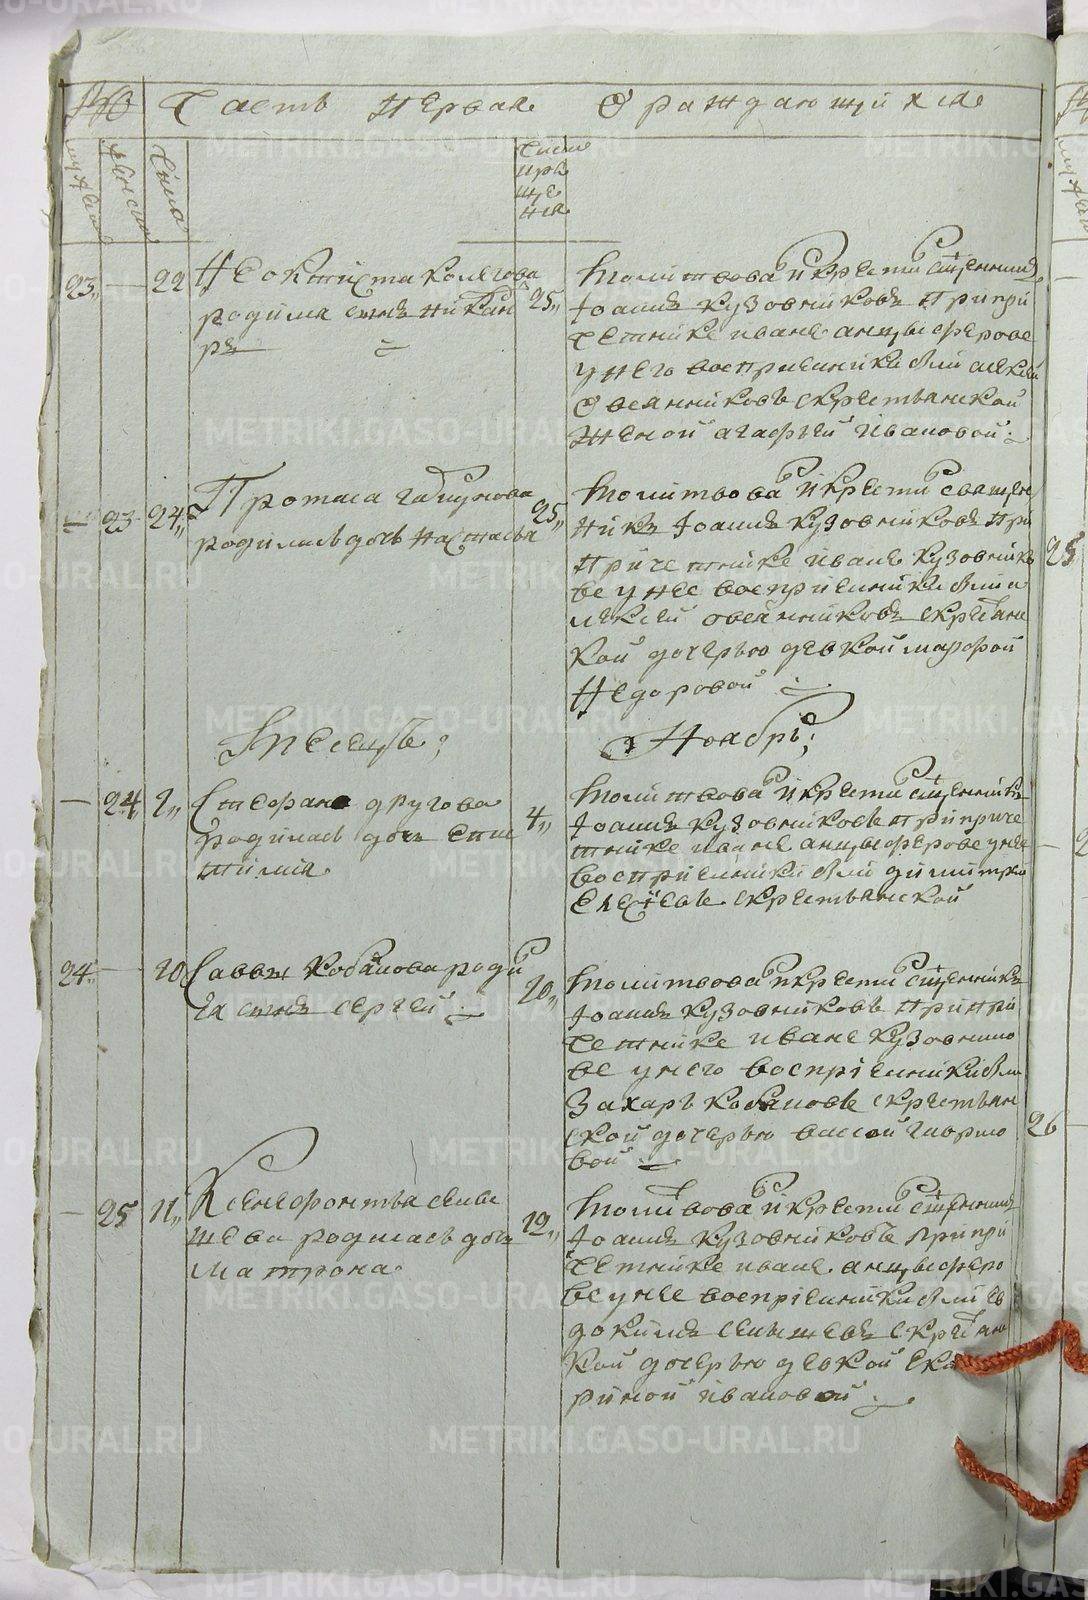 Часть первая О раждающихся
мужеска
женска
числа
число
кре
ще
ния
23 — 22 Феоктиста Колегова
родился сынъ Никан
ръ
25 молитвова и крести свщенникъ
Іоаннъ Кузовниковъ при при
четнике иване анцыферове
у него восприемники были алексей
Овсянниковъ скрестьянской
женой агафьей Ивановой
— 23 24 Протаса габрунова
родилась дочь настасья
25 молитвова и крести священ
никъ Іоаннъ Кузовниковъ при
причетнике иване кузовнико
ве у нее восприемники были а
лексей овсянниковъ скрестьянс
кой дочерью девкой марфой
Федоровой
Месецъ
Ноябрь
— 24 2 Стефана другова
родилась дочь епис
тимия
4 молитвова и крести свщенникъ
Іоаннъ Кузовниковъ при приче
тнике иване анцыферове у нее
восприемники были димитрей
Елесеевъ скрестьянской
24 — 10 Саввы Кобалова роди
ся сынъ Сергей
10 молитвова и крести свщенникъ
Іоаннъ Кузовниковъ при при
четнике иване Кузовнико
ве у него восприемники были
Захаръ Кобаловъ скрестьян
ской дочерью вассой гаврило
вой
— 25 11 Ксенефонтъа сены
щева родилась дочь
матрона
12 молитвова и крести свщенникъ
Іоаннъ Кузовниковъ при при
четнике иване анцыферо
ве у нее восприемники были ев
докимъ сеныщевъ скрестьянс
кой дочерью девкой ека
риной ивановой
25
26